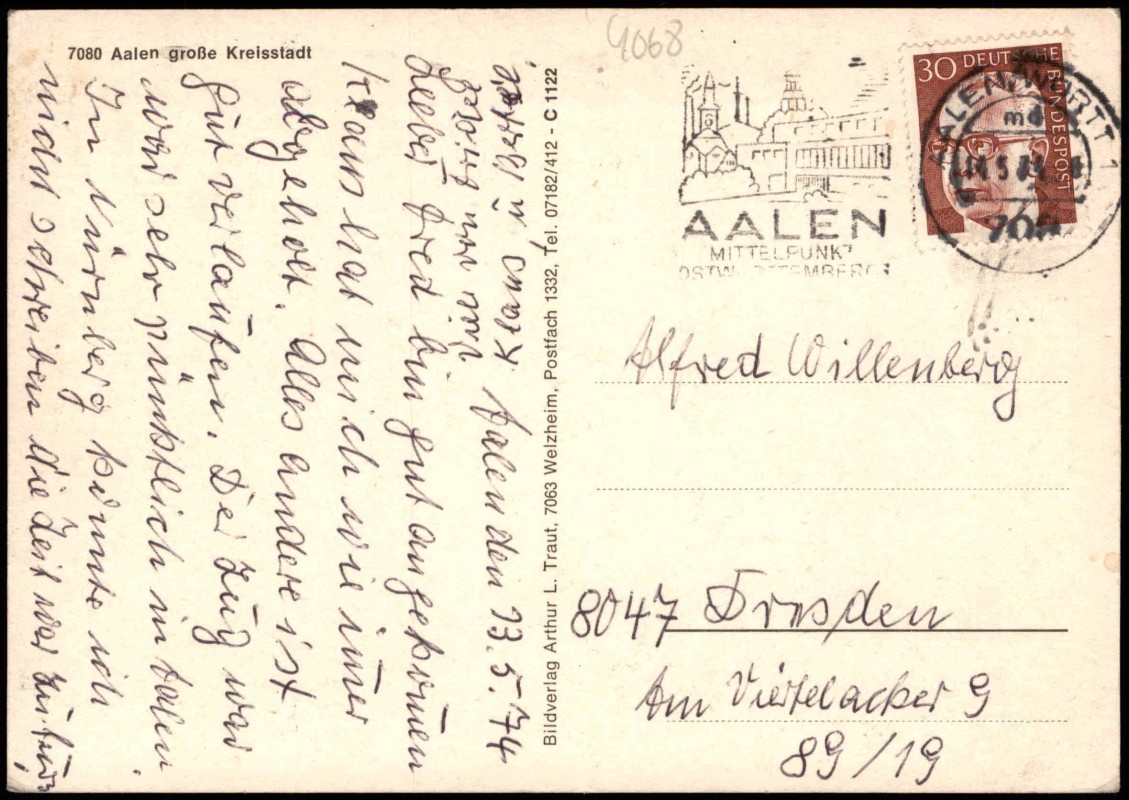 7080 Aalen große Kreisstadt
4068
Aalen den 13.5.74
Lieber Fred bin gut angekom̅en
Klaus hat mich wie im̅er
abgeholt. Alles andere ist
gut verlaufen. Der Zug war
war sehr pünktlich in Aalen
In Nürnberg kon̅te ich
nicht schreiben die Zeit war zu kurz
Klaus u.
Bildverlag Arthur L. Traut, 7063 Welzheim, Postfach 1332, Tel. 07182/412 - C 1122
AALEN
MITTELPUNKT
OSTWÜRTTEMBERGS
30 DEUTSCHE BUNDESPOST
AALEN, WÜRTT 1
Alfred Willenberg
8047 Dresden
Am Viertelacker 9
89/19